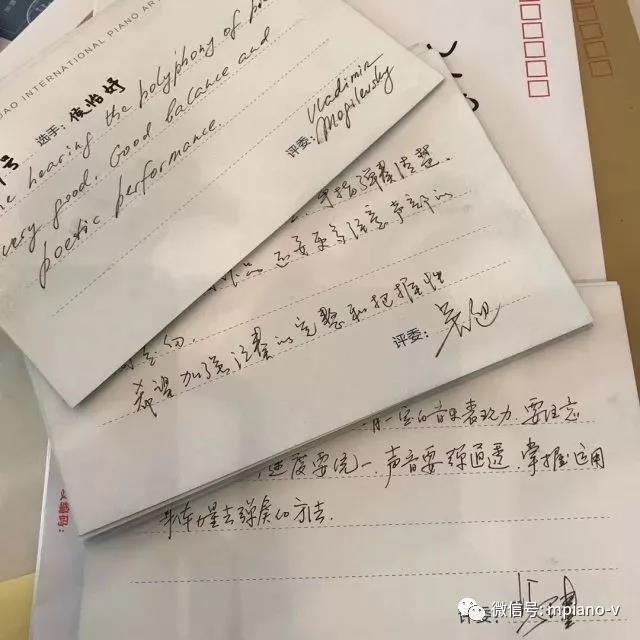 DAO INTERNATIONAL PIANO AR
号 选手：侯怡妤
hearing the polyphony of
very good. Good balance and
poetic performance.
评委： Vladimir
Mogilevsky
手指弹奏清楚.
还要更多注意声部的
希望加强演奏的完整和把握性
评委：
一定的音乐表现力 要注意
速度要统一 声音要弹通透 掌握运用
力量去弹奏的方法.
评委：
微信号: mpiano-v